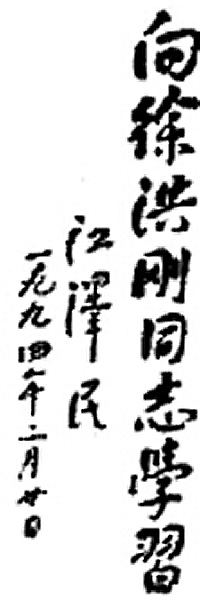 向徐洪刚同志學習
江澤民
一九九四年二月廿日